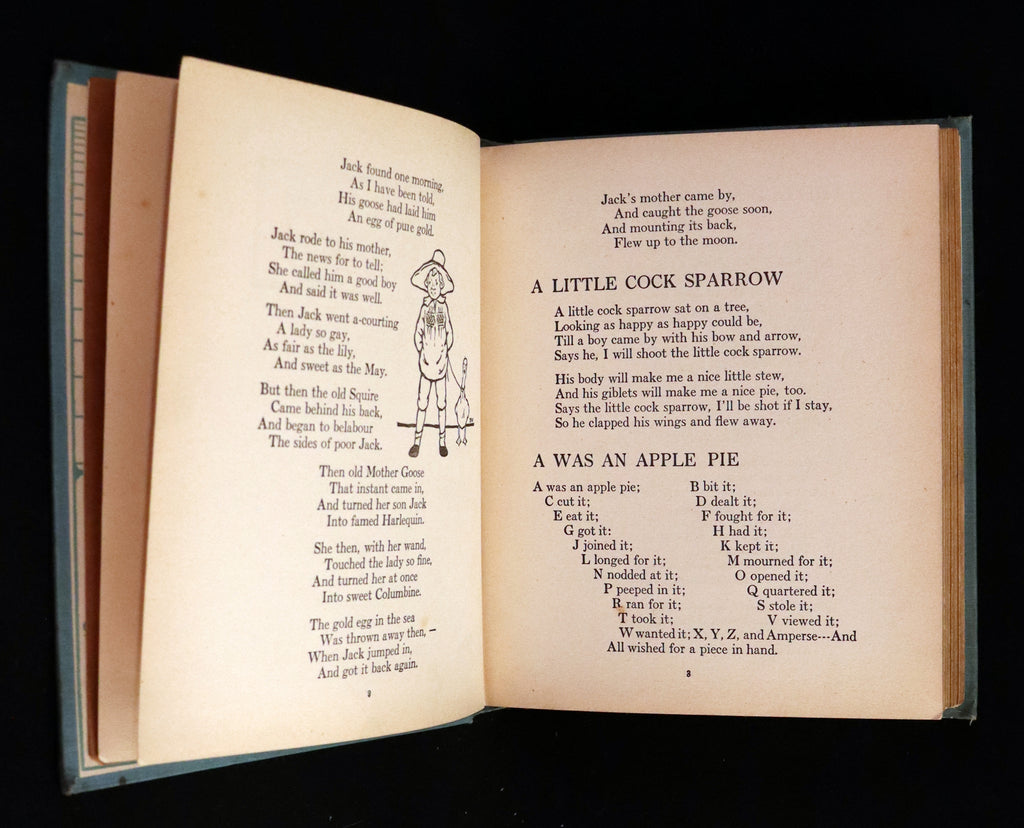 Jack found one morning,
As I have been told,
His goose had laid him
An egg of pure gold.
Jack rode to his mother,
The news for to tell;
She called him a good boy
And said it was well.
Then Jack went a-courting
A lady so gay,
As fair as the lily,
And sweet as the May.
But then the old Squire
Came behind his back,
And began to belabour
The sides of poor Jack.
Then old Mother Goose
That instant came in,
And turned her son Jack
Into famed Harlequin.
She then, with her wand,
Touched the lady so fine,
And turned her at once
Into sweet Columbine.
The gold egg in the sea
Was thrown away then, —
When Jack jumped in,
And got it back again.
Jack's mother came by,
And caught the goose soon,
And mounting its back,
Flew up to the moon.
A LITTLE COCK SPARROW
A little cock sparrow sat on a tree,
Looking as happy as happy could be,
Till a boy came by with his bow and arrow,
Says he, I will shoot the little cock sparrow.
His body will make me a nice little stew,
And his giblets will make me a nice pie, too.
Says the little cock sparrow, I'll be shot if I stay,
So he clapped his wings and flew away.
A WAS AN APPLE PIE
A was an apple pie; B bit it;
C cut it; D dealt it;
E eat it; F fought for it;
G got it: H had it;
J joined it; K kept it;
L longed for it; M mourned for it;
N nodded at it; O opened it;
P peeped in it; Q quartered it;
R ran for it; S stole it;
T took it; V viewed it;
W wanted it; X, Y, Z, and Amperse---And
All wished for a piece in hand.
3